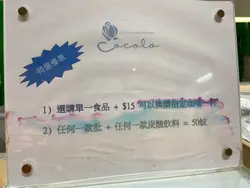 Cocolo
特選優惠
1) 選購單一食品 + $15 可以換購指定
2) 任何一款批 + 任何一款炭酸飲料 = 50蚊